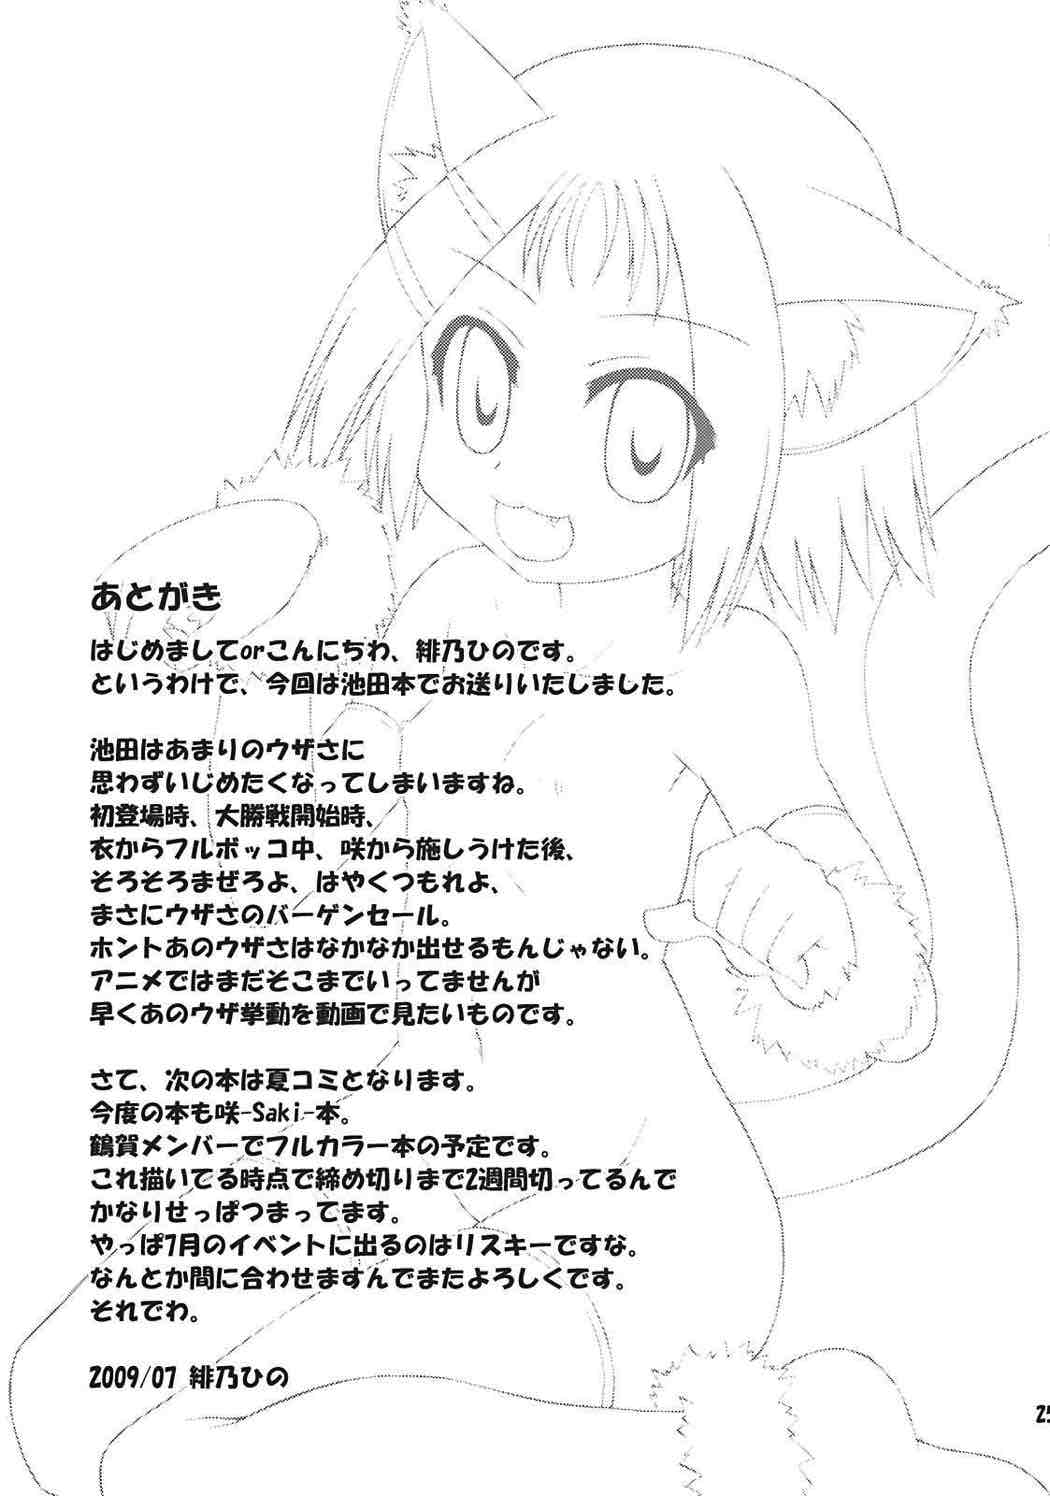 あとがき
はじめましてorこんにちわ、緋乃ひのです。
というわけで、今回は池田本でお送りいたしました。
池田はあまりのウザさに
思わずいじめたくなってしまいますね。
初登場時、大勝戦開始時、
衣からフルボッコ中、咲から施しうけた後、
そろそろまぜろよ、はやくつもれよ、
まさにウザさのバーゲンセール。
ホントあのウザさはなかなか出せるもんじゃない。
アニメではまだそこまでいってませんが
早くあのウザ挙動を動画で見たいものです。
さて、次の本は夏コミとなります。
今度の本も咲-Saki-本。
鶴賀メンバーでフルカラー本の予定です。
これ描いてる時点で締め切りまで2週間切ってるんで
かなりせっぱつまってます。
やっぱ7月のイベントに出るのはリスキーですな。
なんとか間に合わせますんでまたよろしくです。
それでわ。
2009/07 緋乃ひの
25